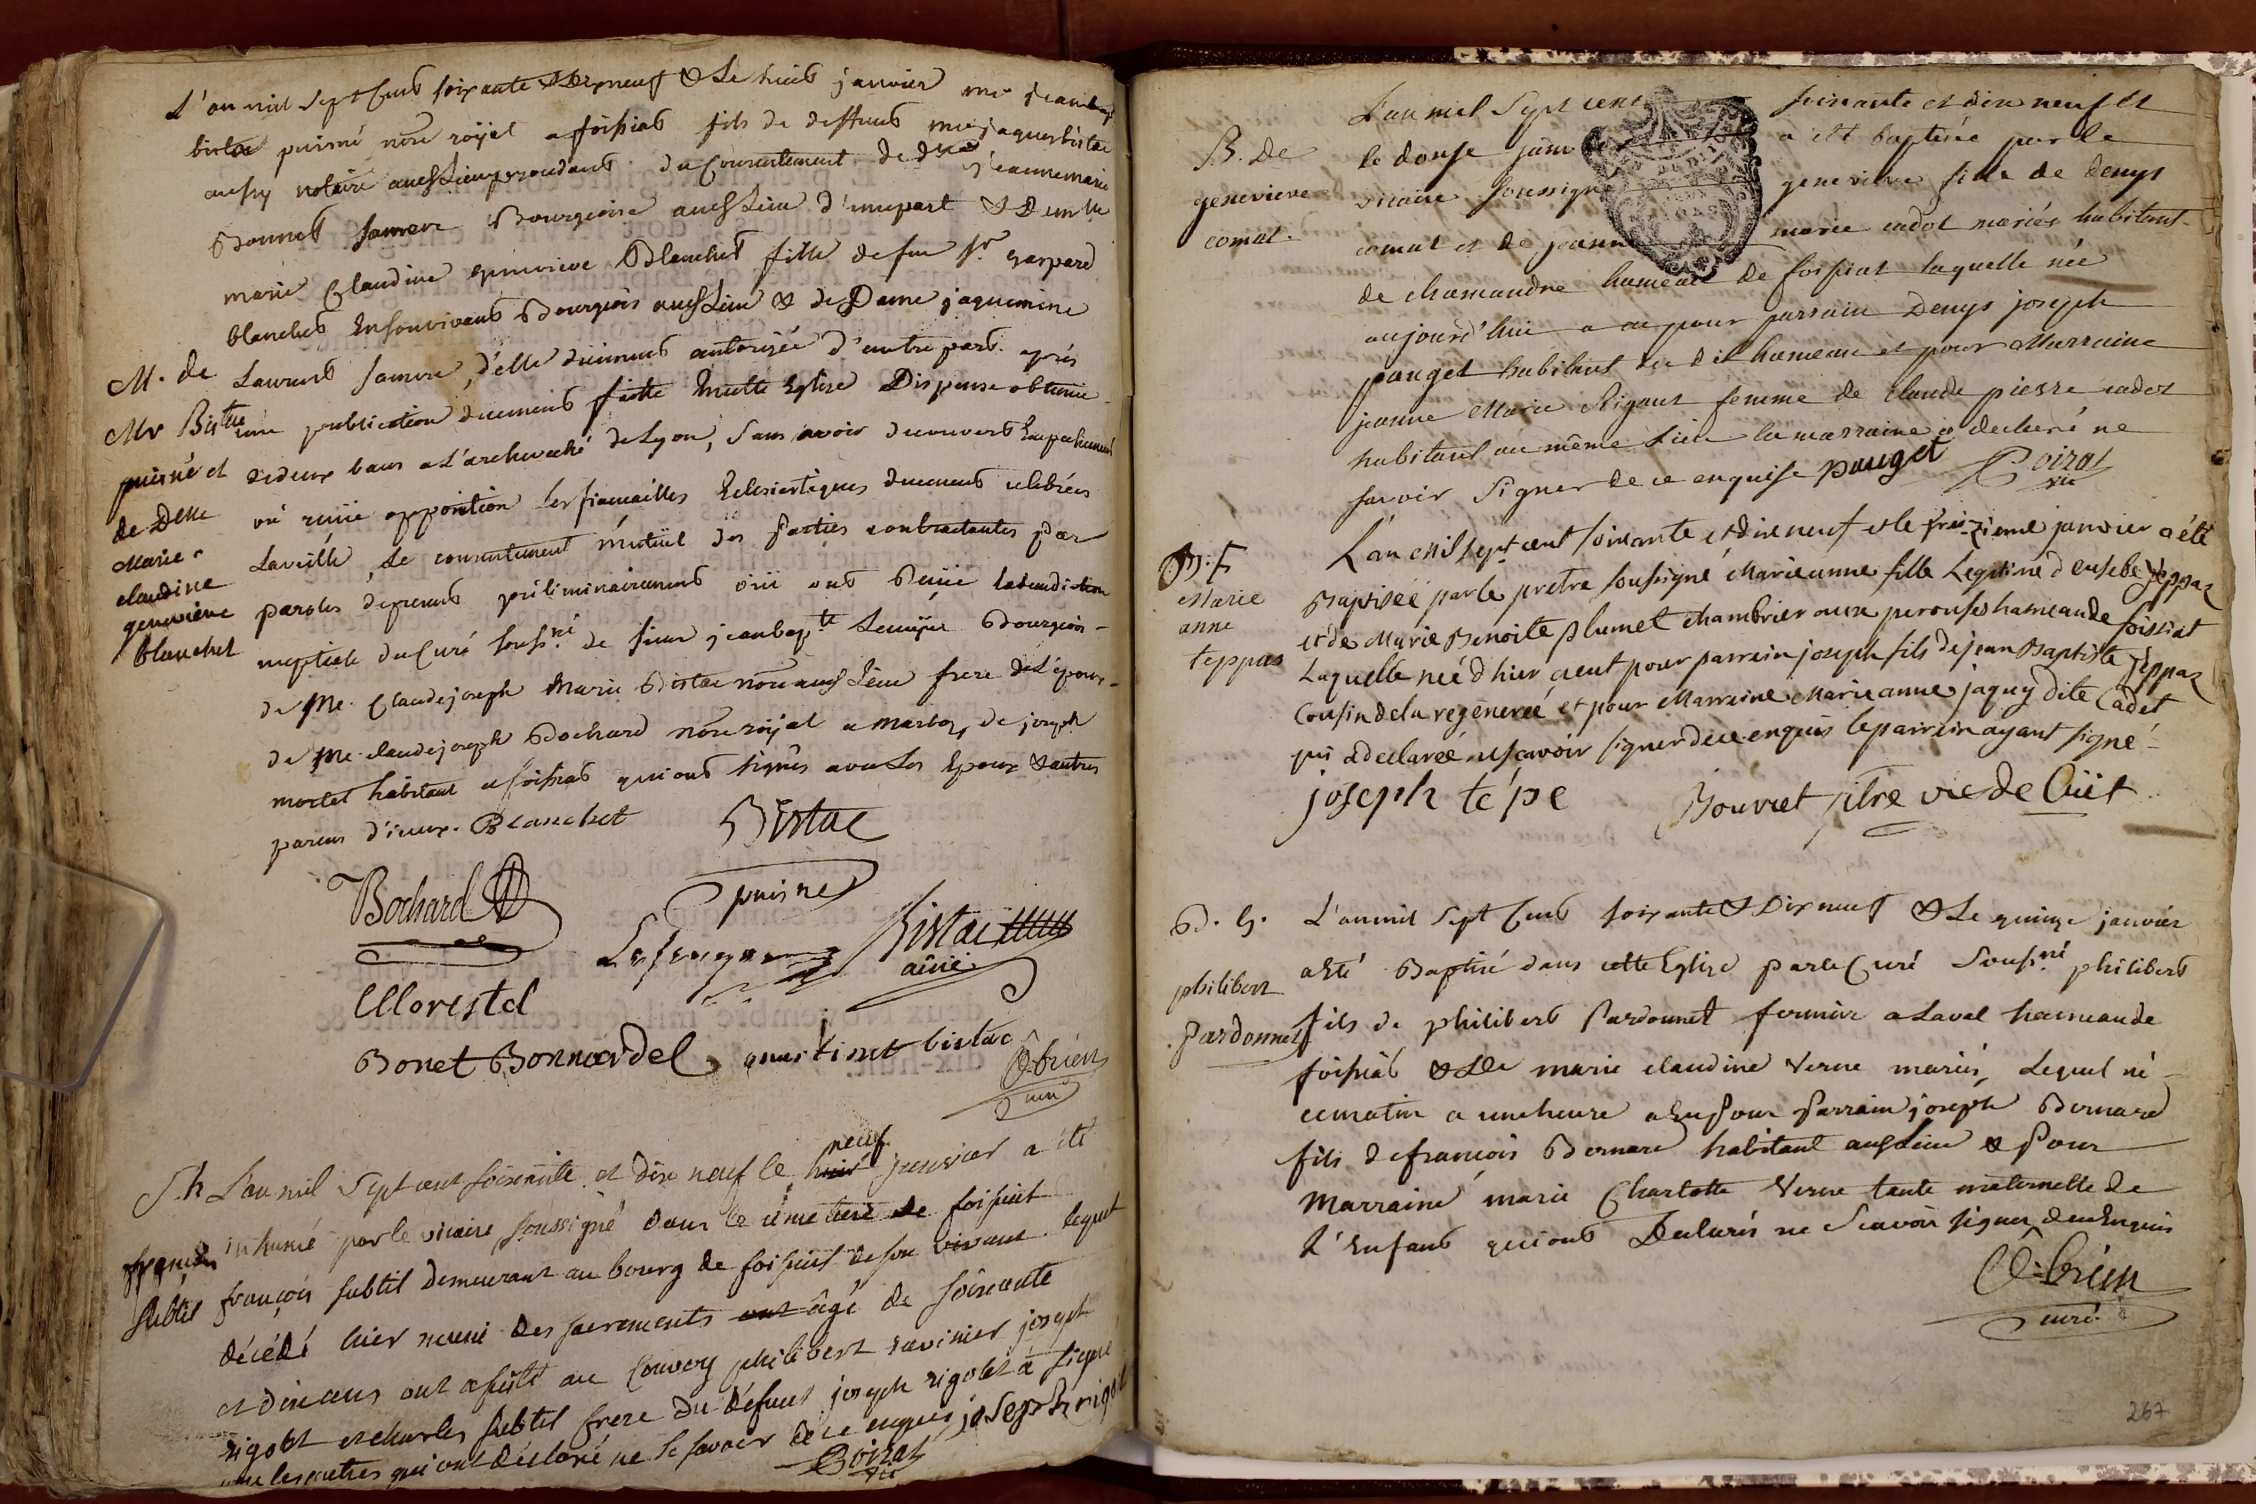 L'an mil Sept Cent soixante & Dix neuf & Le huit janvier me jean bapt
bistac puisné nore roÿal a foissiat fils de deffunt me jaques bistac
aussy notaire audt Lieu procedant du Consentement de dme jeanne marie
Bonnet sa mere Bourgeoise audt Lieu d'une part & Demlle
marie Claudine genevieve Blanchet fille de feu sr. gaspard
blanchet En son vivant Bourgeois audt Lieu & de Dame jaquemine
M. de
Mr Bistac
puisné et
de Delle
Marie
claudine
genevieve
blanchet
Laurent sa mere, d'elle düement autorizée d'autre part. après
une publication duement faitte En cette Eglise Dispense obtenue
de deux bans a L'archevêché de Lyon, sans avoir decouvert Empechement
ni reçue opposition les fiançailles Eclesiastiques duement celebrées
La veille, Le consentement mutüel des Parties contractantes Par
paroles de present préliminairement oüi ont Reçüe la benediction
nuptiale du Curé souss.né de sieur jean bapte. Bourgeois
de Me. Claude joseph Marie Bistac nore audt Lieu frere de L'epoux
de Me. claude joseph Bochard nore roÿal a marboz, de joseph
mortel habitant a foissiat qui ont signés avec Les Epoux & autres
parens d'iceux. Blanchet Bistac
puisné
Bochard
Bistac
ainé
Morestel
Bonet Bonnardel bistac
O-brien
curé
S. h L'an mil Sept cent soixante et dix neuf le huit neuf janvier a été
françois
subtil
inhumé par le vicaire soussigné dans le cimetiere de foissiat
françois subtil demeurant au bourg de foissiat de son vivant lequel
décédé hier muni des sacrements âgé de soixante
et dix ans ont assisté au Convoy philibert ravinier joseph
rigolet et charles subtil frere du défunt joseph rigolet a signé
non les autres qui ont déclaré ne le savoir de ce enquis joseph rigolet
Poizat
vic
B. de
genevieve
comat.
L'an mil Sept cent soixante et dix neuf et
le douse janvier a été baptisée par le
vicaire soussigné genevieve fille de denys
comat et de jeanne marie cadot mariés habitant
de chamandre hameau de foissiat laquelle née
aujourd'hui a eu pour parrain Denys joseph
pauget habitant du dit hameau et pour Marraine
jeanne Marie Rigaut femme de Claude pierre cadot
habitant au même Lieu la marraine a declaré ne
savoir signer de ce enquise pauget Poizat
vic
B. F
Marie
anne
teppas
L'an Mil sept cent soixante et dix neuf et le treizieme janvier a été
Baptisée par le pretre soussigné Marie anne fille Legitime d'eusebe teppaz
et de Marie Benoite plumet chambrier aux perouses hameau de foissiat
Laquelle née d'hier a eut pour parrain joseph fils de jean Baptiste teppaz
Cousin de la regenereé et pour Marraine Marie anne jaquy dite Cadet
qui a declareé ne sçavoir signer de ce enquis le parrain ayant signé
joseph tépe Bouvret ptre vic de Cüet
B. G.
philibert
Pardonnet
L'an mil Sept Cent soixante & Dix neuf & Le quinze janvier
a Eté Baptisé dans cette Eglise par Le Curé Souss.né philibert
fils de philibert Pardonnet fermier a Laval hameau de
foissiat & De marie claudine Verne mariés, Lequel né
ce matin a une heure a Eu Pour Parrain joseph Bernard
fils de françois Bernard habitant audt Lieu & Pour
Marraine marie Charlotte Verne tante maternelle de
L'Enfant qui ont Declarés ne Scavoir signer de ce Enquis
O-brien
curé
267